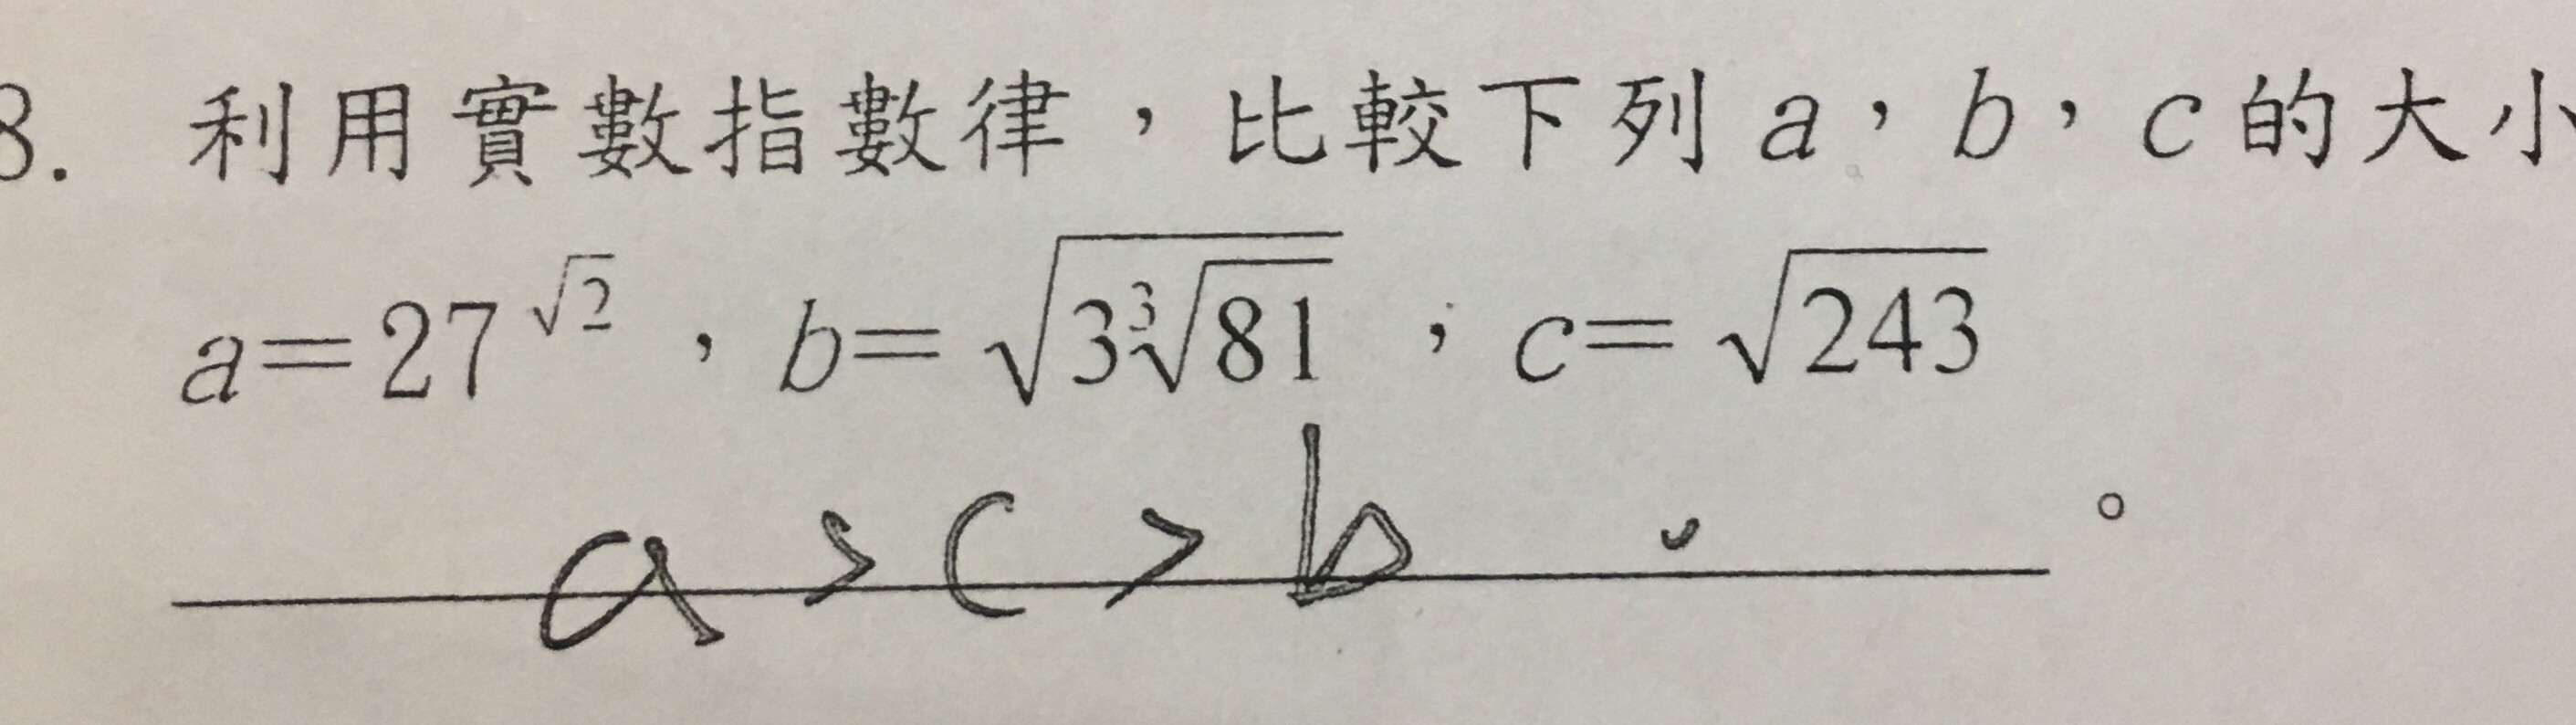 3. 利用實數指數律，比較下列 a，b，c 的大小
a=27^{√2}，b=√(3∛81)，c=√243
a > c > b 。